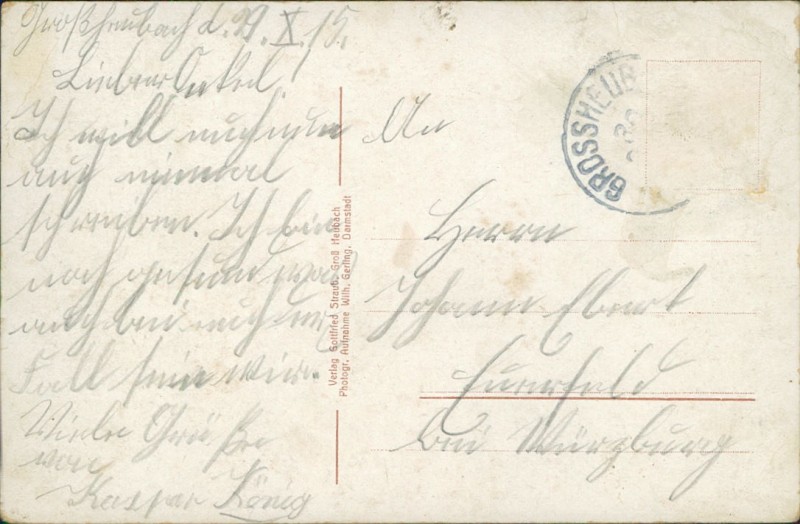 Großheubach d. 29.X.15.
Lieber Onkel!
Ich will euch nun
auch einmal
schreiben. Ich bin
noch gesund was
auch bei euch der
Fall sein wird.
Viele Grüße
von
Kaspar König
Verlag Gottfried Straub, Groß Heubach
Photogr. Aufnahme Wilh. Gerling, Darmstadt
GROSSHEUB
An
Herrn
Johann Ebert
Euerfeld
bei Würzburg